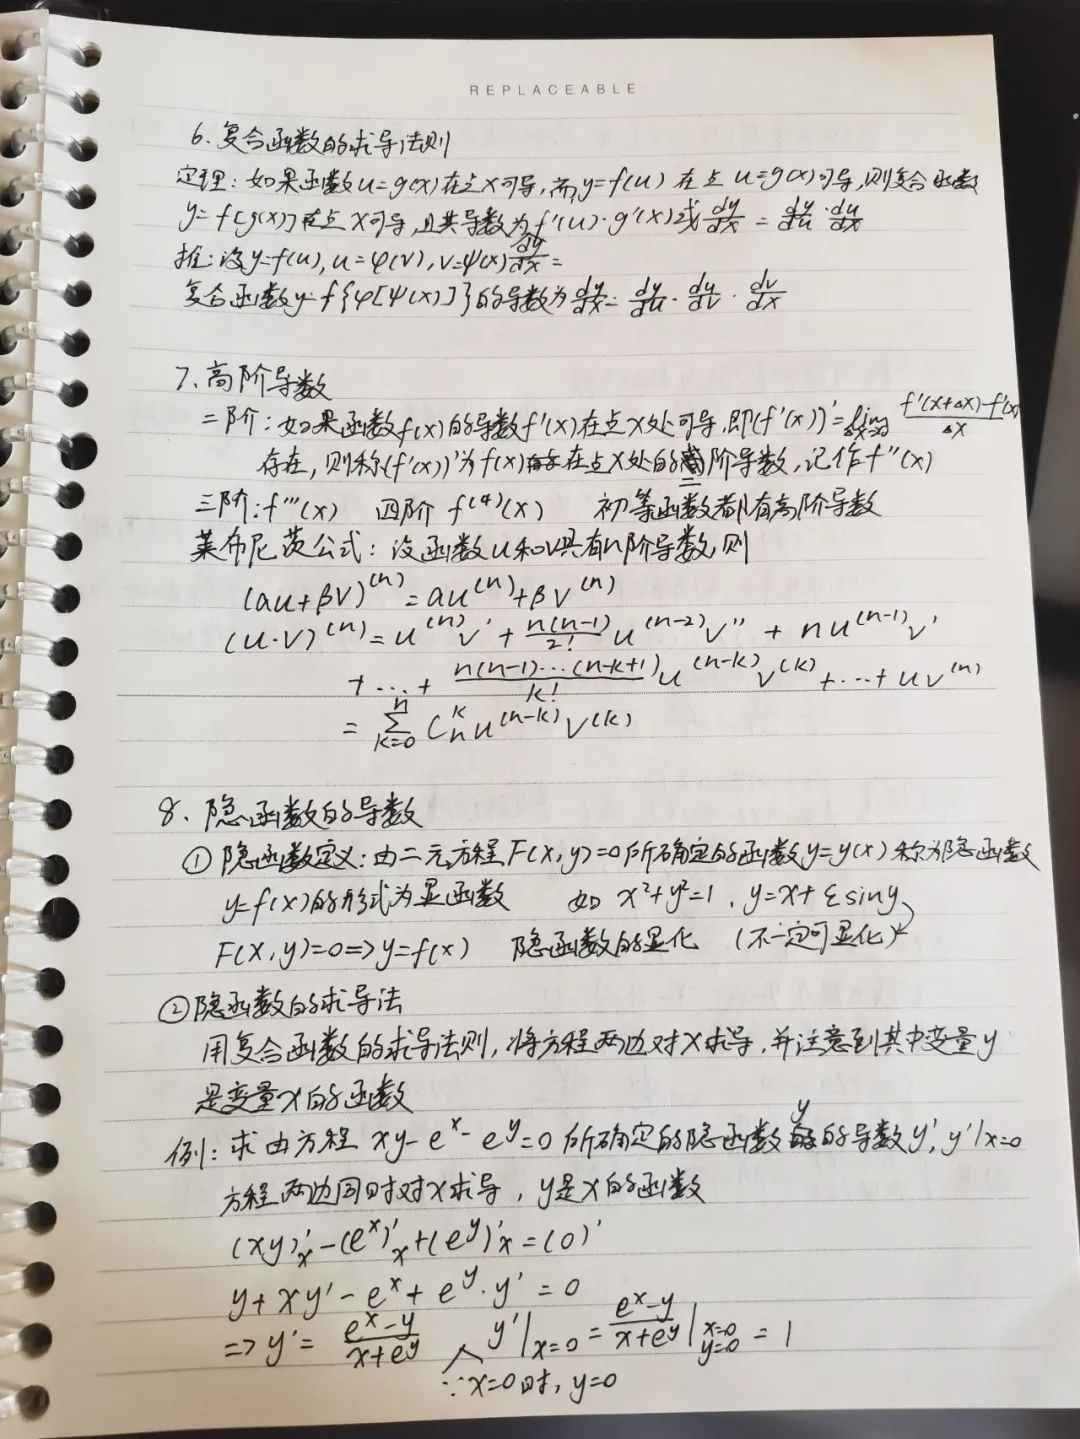 REPLACEABLE
6、复合函数的求导法则
定理：如果函数u=g(x)在点x可导，而y=f(u)在点u=g(x)可导，则复合函数
y=f[g(x)]在点x可导，且其导数为f'(u)·g'(x)或dy/dx = dy/du · du/dx
推：设y=f(u), u=φ(v), v=ψ(x) dy/dx =
复合函数y=f{φ[ψ(x)]}的导数为dy/dx = dy/du · du/dv · dv/dx
7、高阶导数
二阶：如果函数f(x)的导数f'(x)在点x处可导，即(f'(x))'=lim Δx→0 f'(x+Δx)-f'(x)/Δx
存在，则称(f'(x))'为f(x)在点x处的二阶导数，记作f''(x)
三阶：f'''(x) 四阶 f⁽⁴⁾(x) 初等函数都有高阶导数
莱布尼茨公式：设函数u和v具有n阶导数，则
(αu+βv)⁽ⁿ⁾=αu⁽ⁿ⁾+βv⁽ⁿ⁾
(u·v)⁽ⁿ⁾=u⁽ⁿ⁾v' + n(n-1)/2! u⁽ⁿ⁻²⁾v'' + nu⁽ⁿ⁻¹⁾v'
+…+ n(n-1)…(n-k+1)/k! u⁽ⁿ⁻ᵏ⁾v⁽ᵏ⁾+…+uv⁽ⁿ⁾
= Σ k=0 n Cₙᵏ u⁽ⁿ⁻ᵏ⁾v⁽ᵏ⁾
8、隐函数的导数
①隐函数定义：由二元方程F(x,y)=0所确定的函数y=y(x)称为隐函数
y=f(x)的形式为显函数 如 x²+y²=1, y=x+εsiny
F(x,y)=0=>y=f(x) 隐函数的显化 （不一定可显化）
②隐函数的求导法
用复合函数的求导法则，将方程两边对x求导，并注意到其中变量y
是变量x的函数
例：求由方程 xy-eˣ-eʸ=0所确定的隐函数y的导数y', y'|x=0
方程两边同时对x求导，y是x的函数
(xy)'ₓ-(eˣ)'ₓ+(eʸ)'ₓ=(0)'
y+xy'-eˣ+eʸ·y'=0
=>y'= eˣ-y/x+eʸ y'|x=0 = eˣ-y/x+eʸ | x=0 y=0 = 1
∵x=0时，y=0